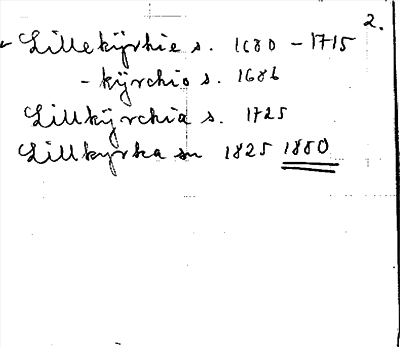 2.
Lillekÿrkie s. 1680 - 1715
- kÿrchio s. 1686
Lillkÿrchia s. 1725
Lillkyrka sn 1825 1880